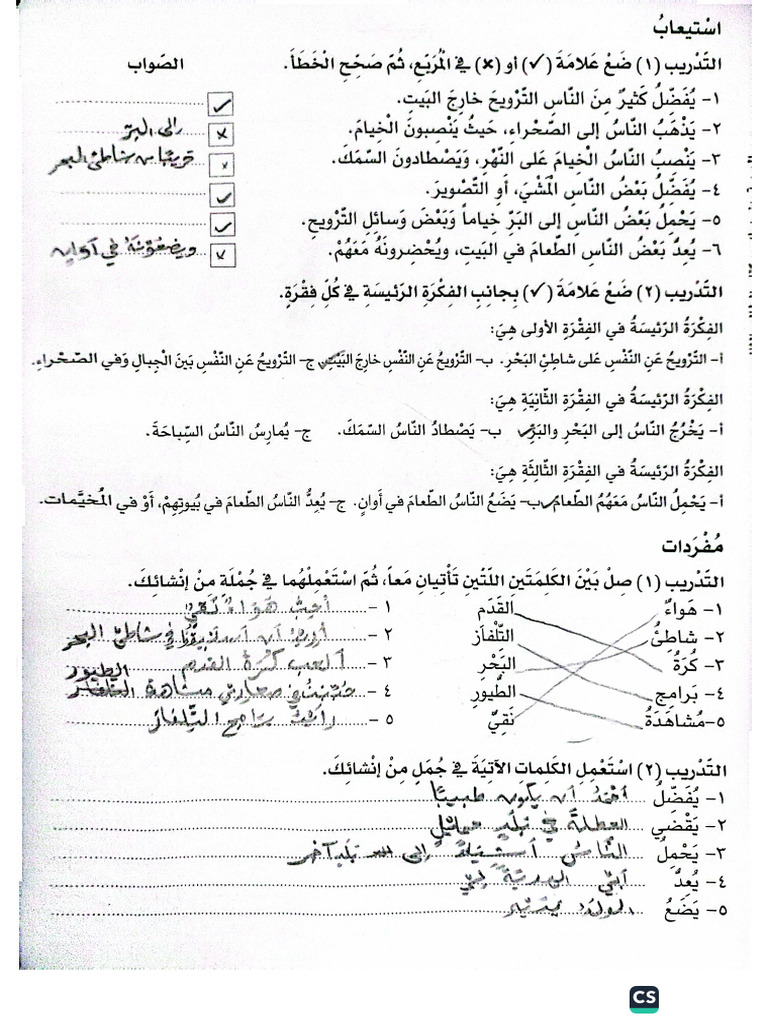 اسْتيعابُ
التَّدْريب (١) ضَعْ عَلامَةَ (✓) أو (×) في الْمُرَبَّعِ، ثُمَّ صَحِّحِ الْخَطَأَ. الصَّواب
١- يُفَضِّلُ كَثيرٌ مِنَ النّاسِ التَّرْويحَ خارِجَ البَيتِ. ✓
٢- يَذْهَبُ النّاسُ إلى الصَّحْراءِ، حَيثُ يَنْصِبونَ الْخِيامَ. × إلى البَرِّ
٣- يَنْصِبُ النّاسُ الْخِيامَ عَلى النَّهْرِ، وَيَصْطادونَ السَّمَكَ. × قريبًا من شاطئ البحر
٤- يُفَضِّلُ بَعْضُ النّاسِ الْمَشْيَ، أَوِ التَّصْويرَ. ✓
٥- يَحْمِلُ بَعْضُ النّاسِ إلى البَرِّ خِياماً وَبَعْضَ وَسائِلِ التَّرْويحِ. ✓
٦- يُعِدُّ بَعْضُ النّاسِ الطَّعامَ في البَيتِ، ويُحْضِرونَهُ مَعَهُمْ. × ويضعونه في أوان
التَّدْريب (٢) ضَعْ عَلامَةَ (✓) بِجانِبِ الفِكْرَةِ الرَّئيسَةِ في كُلِّ فِقْرَةٍ.
الفِكْرَةُ الرَّئيسَةُ في الفِقْرَةِ الأولى هِيَ:
أ- التَّرْويحُ عَنِ النَّفْسِ عَلى شاطِئِ البَحْرِ. ب- التَّرْويحُ عَنِ النَّفْسِ خارِجَ البَيْتِ. ✓ ج- التَّرْويحُ عَنِ النَّفْسِ بَينَ الْجِبالِ وَفي الصَّحْراءِ.
الفِكْرَةُ الرَّئيسَةُ في الفِقْرَةِ الثّانِيَةِ هِيَ:
أ- يَخْرُجُ النّاسُ إلى البَحْرِ والبَرِّ. ✓ ب- يَصْطادُ النّاسُ السَّمَكَ. ج- يُمارِسُ النّاسُ السِّباحَةَ.
الفِكْرَةُ الرَّئيسَةُ في الفِقْرَةِ الثّالِثَةِ هِيَ:
أ- يَحْمِلُ النّاسُ مَعَهُمُ الطَّعامَ. ✓ ب- يَضَعُ النّاسُ الطَّعامَ في أَوانٍ. ج- يُعِدُّ النّاسُ الطَّعامَ في بُيوتِهِمْ، أَوْ في الْمُخَيَّمات.
مُفْرَدات
التَّدْريب (١) صِلْ بَيْنَ الكَلِمَتَينِ اللَّتَينِ تَأْتِيانِ مَعاً، ثُمَّ اسْتَعْمِلْهُما في جُمْلَة مِنْ إنْشائِكَ.
١- هَواءٌ القَدَم ١- أُحِبُّ هَوَاءً نَقِيّ
٢- شاطِئُ التِّلْفاز ٢- في شاطئ البحر
٣- كُرَةُ البَحْرِ ٣- ألعب كُرَةَ القدم
٤- بَرامِج الطُّيورِ ٤- مشاهدة الطيور
٥- مُشاهَدَةُ نَقِيٌّ ٥- رأيت برامج التِّلفاز
التَّدْريب (٢) اسْتَعْمِلِ الكَلِماتِ الآتِيَةَ في جُمَلٍ مِنْ إنْشائِكَ.
١- يُفَضِّلُ أحْمَدُ أن يكون طبيبًا
٢- يَقْضي العطلةَ في بَلَدٍ جميل
٣- يَحْمِلُ النَّاسُ أشياءَ إلى بَلَد آخر
٤- يُعِدُّ
٥- يَضَعُ الولدُ
CS